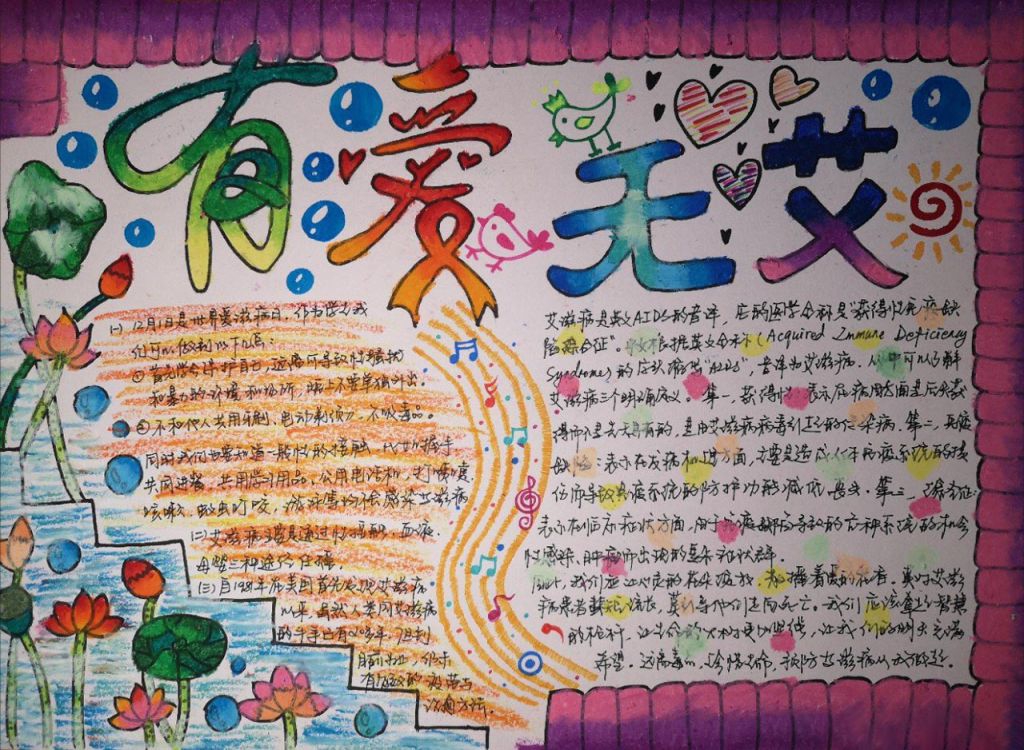 有爱无艾
(一) 12月1日是世界艾滋病日，作为学生我
们可以做到以下几点：
①首先学会保护自己，远离可导致性骚扰
和暴力的环境和场所，晚上不要单独外出。
②不和他人共用牙刷，电动剃须刀，不吸毒。
同时我们也要知道一般性的接触，比如握手
共同进餐，共用学习用品，公用电话机，打喷嚏
咳嗽，蚊虫叮咬，游泳馆均不感染艾滋病
(二)艾滋病主要是通过性接触，血液，
母婴三种途径传播。
(三)自1981年在美国首先发现艾滋病
以来，虽然人类同艾滋病
的斗争已有20多年，但到
目前为止，仍未
有有效的疫苗与
治愈方法。
艾滋病是英文AIDS的音译，后的医学全称是"获得性免疫缺
陷综合征"根据英文全称(Acquired Immune Deficiency
Syndrome)的 "AIDS"，音译为艾滋病。从中可以了解
艾滋病三个明确定义：第一，获得性：表示在病因方面是后天获
得而不是先天具有的，是由艾滋病病毒引起的传染病。第二，免疫
缺陷：表示在发病机理方面，主要是造成人体免疫系统的损
伤而导致免疫系统的防护功能减低、丧失。第三，综合征：
表示在临床症状方面，由于免疫缺陷导致的 种系统的机会
性感染、肿瘤而出现的复杂症状群。
的花香。真的艾滋
病患者 走向死亡。我们应该 智慧
的 ，让生命的 ，让我们的明天充满
希望。远离毒品，珍惜生命，预防艾滋病从我做起。